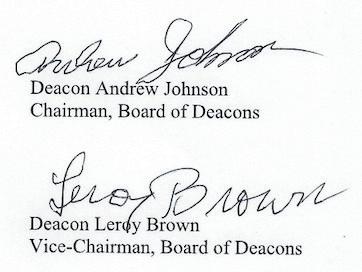 Andrew Johnson
Deacon Andrew Johnson
Chairman, Board of Deacons
Leroy Brown
Deacon Leroy Brown
Vice-Chairman, Board of Deacons